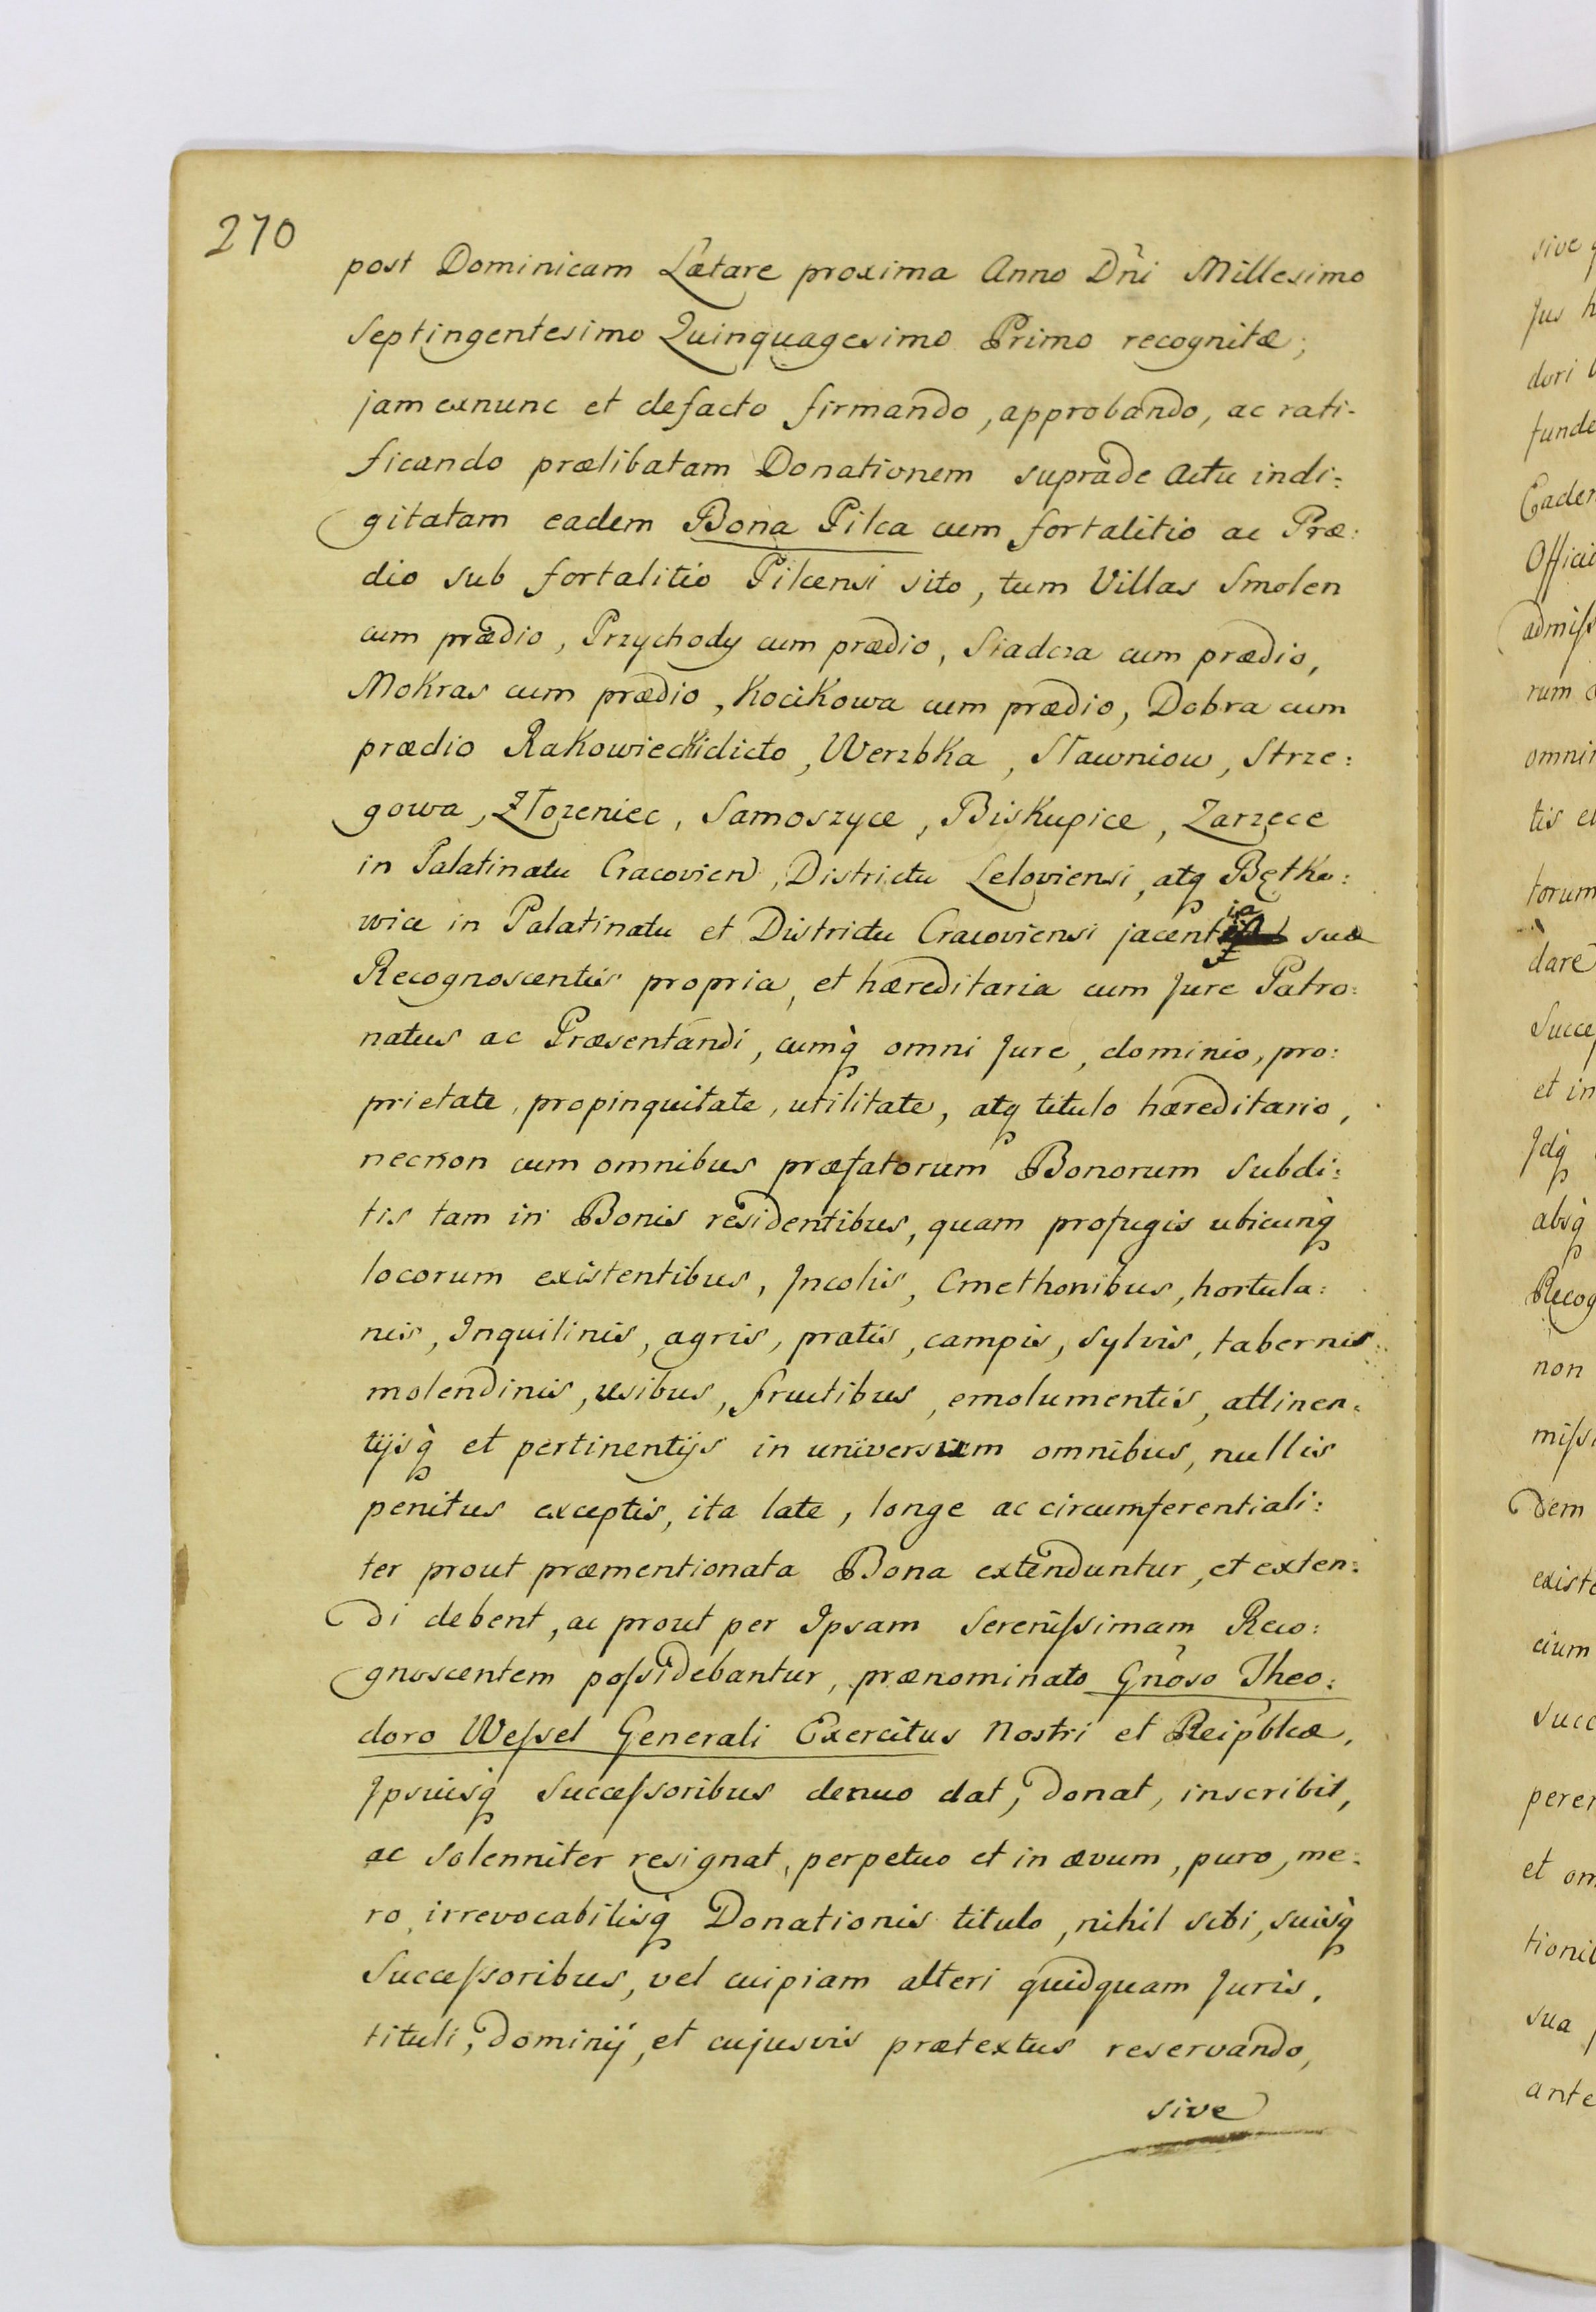 270
post Dominicam Lætare proxima Anno Dn̄i Millesimo
Septingentesimo Quinquagesimo Primo recognitæ;
jam exnunc et defacto firmando, approbando, ac rati-
ficando prælibatam Donationem supra de Actu indi:
gitatam eadem Bona Pilca cum fortalitio ac Præ:
dio sub fortalitio Pilcensi sito, tum Villas Smolen
cum prædio, Przychody cum prædio, Siadcza cum prædio,
Mokras cum prædio, Kocikowa cum prædio, Dobra cum
prædio Rakowiecki dicto, Werzbka, Sławniow, Strze:
gowa, Złozeniec, Samoszyce, Biskupice, Zarzęce
in Palatinatu Cracovien, Districtu Leloviensi, atq Bętko:
wice in Palatinatu et Districtu Cracoviensi jacentia suæ
Recognoscentis propria, et hæreditaria cum Jure Patro:
natus ac Præsentandi, cumq̀ omni Jure, dominio, pro:
prietate, propinquitate, utilitate, atq titulo hæreditario,
necnon cum omnibus præfatorum Bonorum Subdi:
tis tam in Bonis residentibus, quam profugis ubicunq̀
locorum existentibus, Incolis, Cmethonibus, hortula:
nis, Inquilinis, agris, pratis, campis, sylvis, tabernis
molendinis, usibus, fructibus, emolumentis, attinen:
tijsq̀ et pertinentijs in universum omnibus, nullis
penitus exceptis, ita late, longe ac circumferentiali:
ter prout præmentionata Bona extenduntur, et exten:
di debent, ac prout per Ipsam Sereniſsimam Reco:
gnoscentem poſsidebantur, prænominato Gn̄oso Theo:
doro Weſsel Generali Exercitus Nostri et Reipb̄licæ,
Ipsiusq̀ Succeſsoribus denuo dat, donat, inscribit,
ac solenniter resignat, perpetuo et in ævum, puro, me:
ro, irrevocabilisq̀ Donationis titulo, nihil sibi, suisq̀
Succeſsoribus, vel cuipiam alteri quidquam Juris,
tituli, dominij, et cujusvis prætextus reservando,
sive